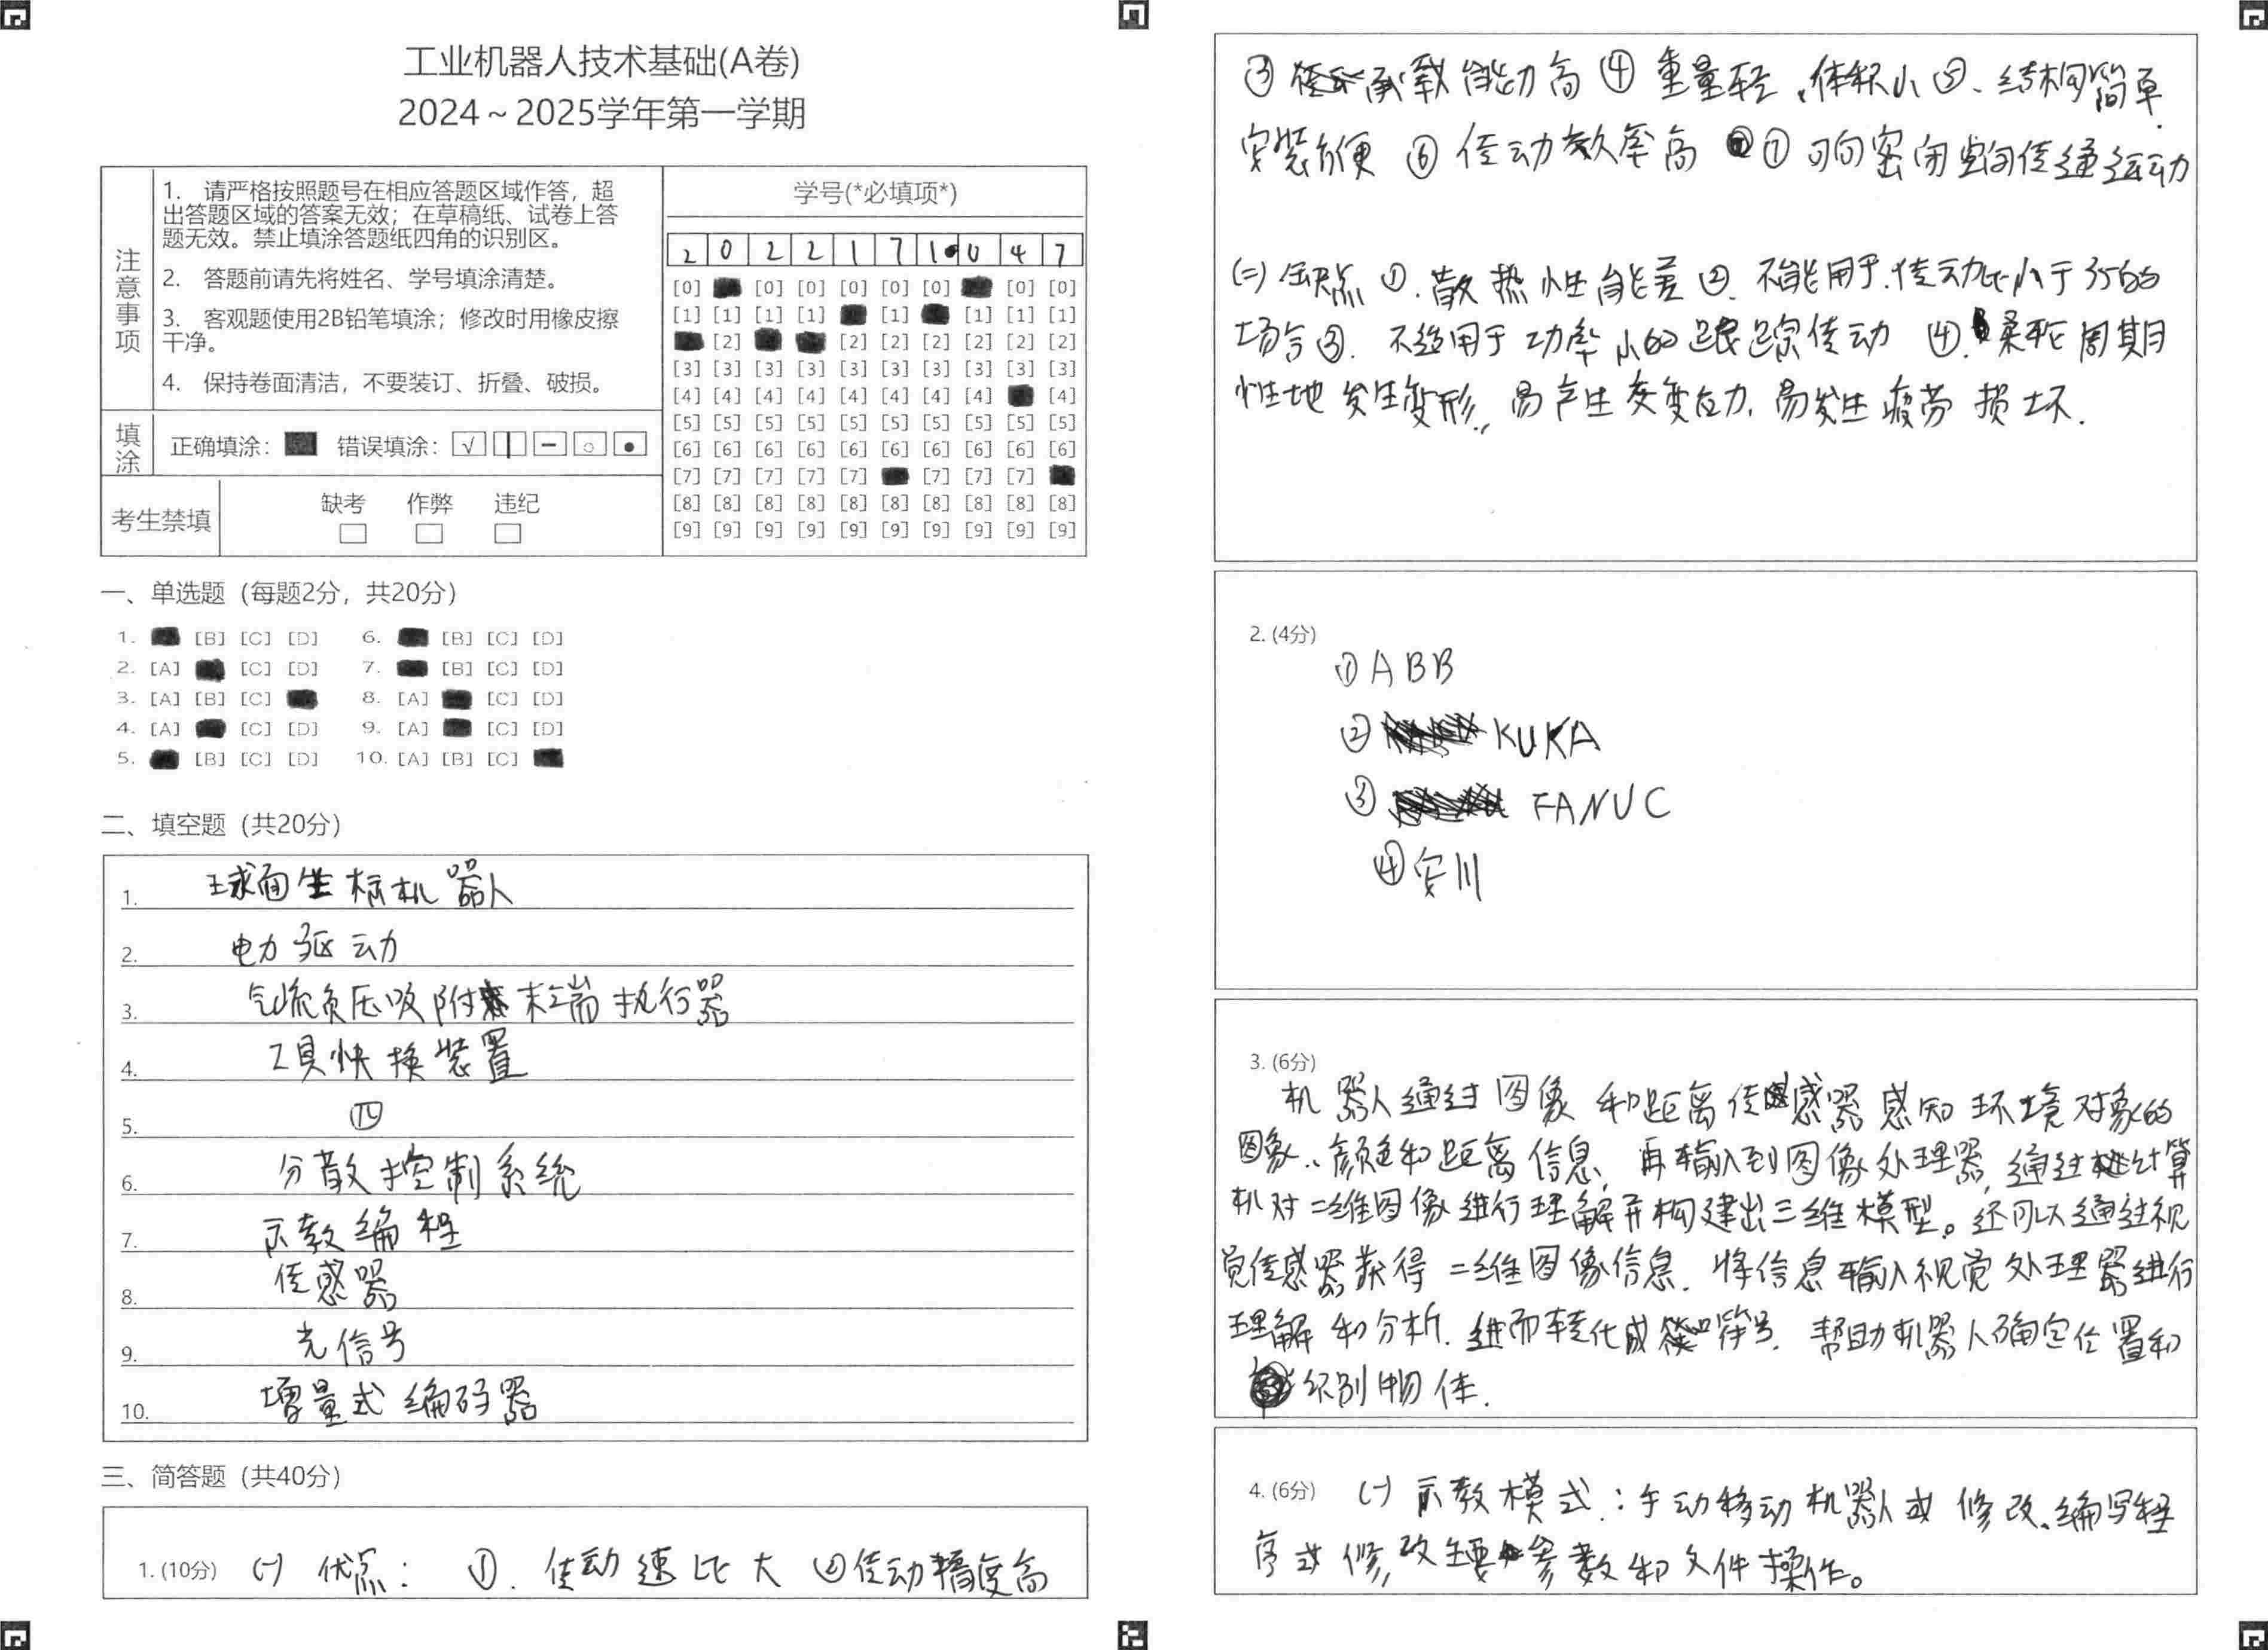 工业机器人技术基础(A卷)
2024～2025学年第一学期
注意事项
1. 请严格按照题号在相应答题区域作答，超
出答题区域的答案无效；在草稿纸、试卷上答
题无效。禁止填涂答题纸四角的识别区。
2. 答题前请先将姓名、学号填涂清楚。
3. 客观题使用2B铅笔填涂；修改时用橡皮擦
干净。
4. 保持卷面清洁，不要装订、折叠、破损。
填涂
正确填涂： 错误填涂： √
考生禁填
缺考 作弊 违纪
学号(*必填项*)
2 0 2 2 1 7 1 0 4 7
[0] [0] [0] [0] [0] [0] [0] [0]
[1] [1] [1] [1] [1] [1] [1] [1]
[2] [2] [2] [2] [2] [2] [2]
[3] [3] [3] [3] [3] [3] [3] [3] [3] [3]
[4] [4] [4] [4] [4] [4] [4] [4] [4]
[5] [5] [5] [5] [5] [5] [5] [5] [5] [5]
[6] [6] [6] [6] [6] [6] [6] [6] [6] [6]
[7] [7] [7] [7] [7] [7] [7] [7]
[8] [8] [8] [8] [8] [8] [8] [8] [8] [8]
[9] [9] [9] [9] [9] [9] [9] [9] [9] [9]
一、单选题（每题2分，共20分）
1. [B] [C] [D] 6. [B] [C] [D]
2. [A] [C] [D] 7. [B] [C] [D]
3. [A] [B] [C] 8. [A] [C] [D]
4. [A] [C] [D] 9. [A] [C] [D]
5. [B] [C] [D] 10. [A] [B] [C]
二、填空题（共20分）
1. 球面坐标机器人
2. 电力驱动
3. 气流负压吸附末端执行器
4. 工具快换装置
5. 四
6. 分散控制系统
7. 示教编程
8. 传感器
9. 光信号
10. 增量式编码器
三、简答题（共40分）
1. (10分) (一) 优点： ①. 传动速比大 ②传动精度高
③ 承载能力高 ④ 重量轻、体积小 ⑤、结构简单.
安装方便 ⑥ 传动效率高 ⑦ 可向密闭空间传递运动
(二) 缺点 ①. 散热性能差 ②. 不能用于传动比小于35的
场合 ③. 不适用于功率小的跟踪传动 ④. 柔轮周期
性地发生变形, 易产生交变应力, 易发生疲劳损坏.
2. (4分)
① ABB
② KUKA
③ FANUC
④ 安川
3. (6分)
机器人通过图像和距离传感器感知环境对象的
图象、颜色和距离信息, 再输入到图像处理器, 通过计算
机对二维图像进行理解并构建出三维模型。还可以通过视
觉传感器获得二维图像信息. 将信息输入视觉处理器进行
理解和分析. 进而转化成符号. 帮助机器人确定位置和
识别物体.
4. (6分) (一) 示教模式：手动移动机器人或修改、编写程
序或修改主要参数和文件操作。